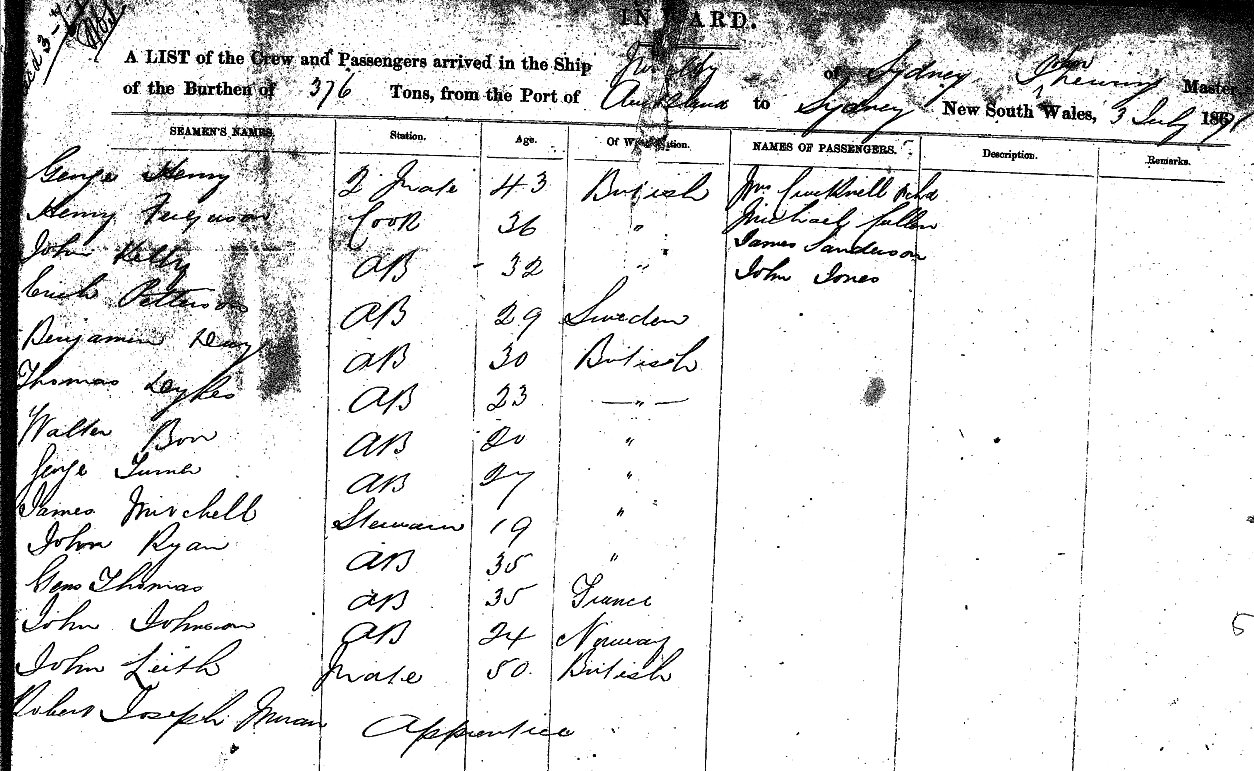 INWARD.
A LIST of the Crew and Passengers arrived in the Ship of Sydney John Master
of the Burthen of 376 Tons, from the Port of Auckland to Sydney New South Wales, 3 July 1871
SEAMEN'S NAMES. Station. Age. Of What Nation. NAMES OF PASSENGERS. Description. Remarks.
George Henry 2 Mate 43 British Mrs
Henry Ferguson Cook 36 " Michael Cullen
John Kelly AB 32 " James Sanderson
John Jones
Petterson AB 29 Sweden
Benjamin Davy AB 30 British
Thomas Dykes AB 23 — " —
Walter AB 20 "
George Turner AB 27 "
James Mitchell Steward 19 "
John Ryan AB 35 "
Thomas AB 35 France
John Johnson AB 24 Norway
John Leith Mate 50 British
Robert Joseph Moran Apprentice
5